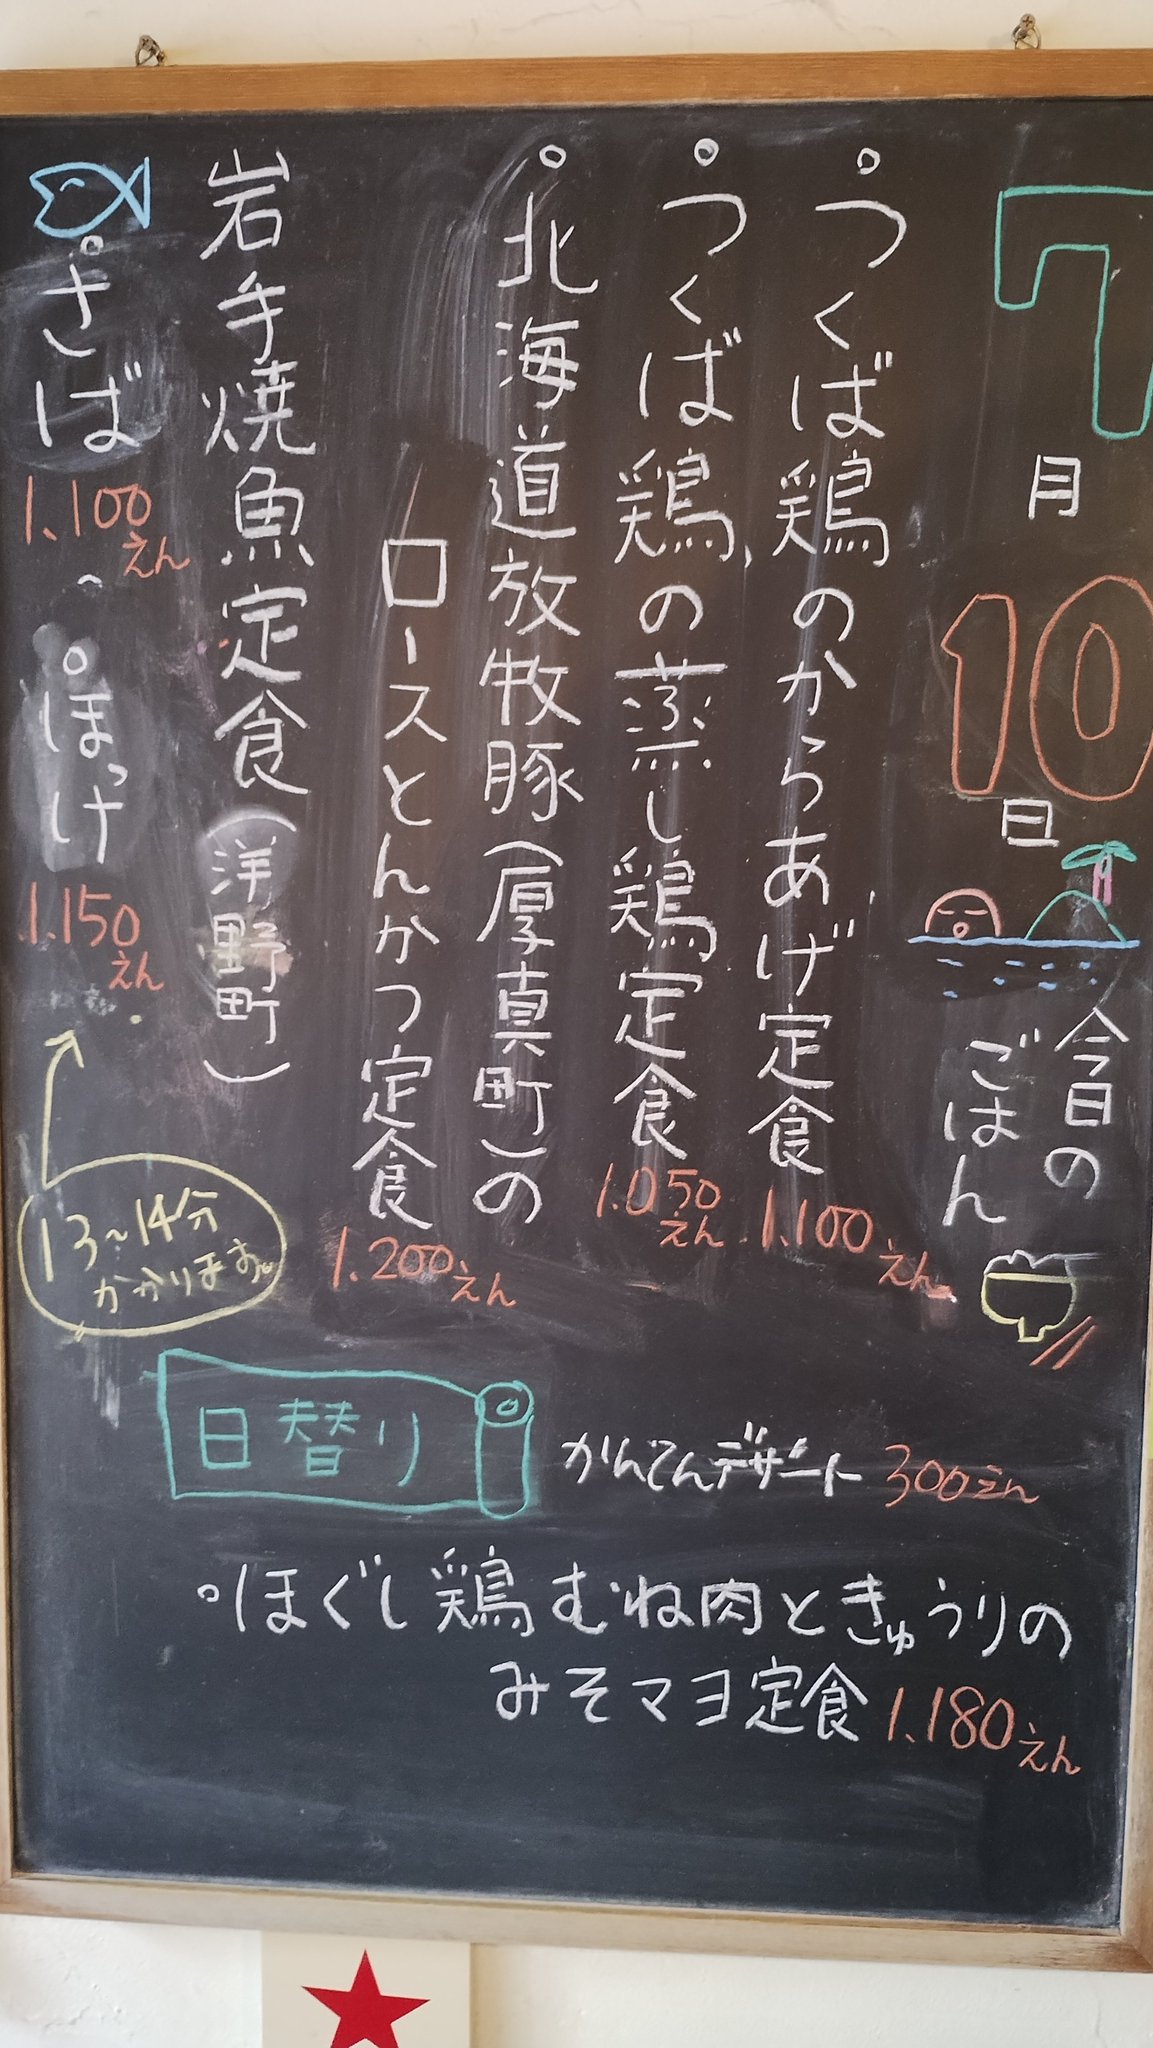 7月10日
今日の
ごはん
°つくば鶏のからあげ定食 1.100えん
°つくば鶏の蒸し鶏定食 1.050えん
°北海道放牧豚(厚真町)の
ロースとんかつ定食 1.200えん
岩手焼魚定食(洋野町)
°さば 1.100えん
°ほっけ 1.150えん
13~14分
かかります。
日替り
かんてんデザート 300えん
°ほぐし鶏むね肉ときゅうりの
みそマヨ定食 1.180えん